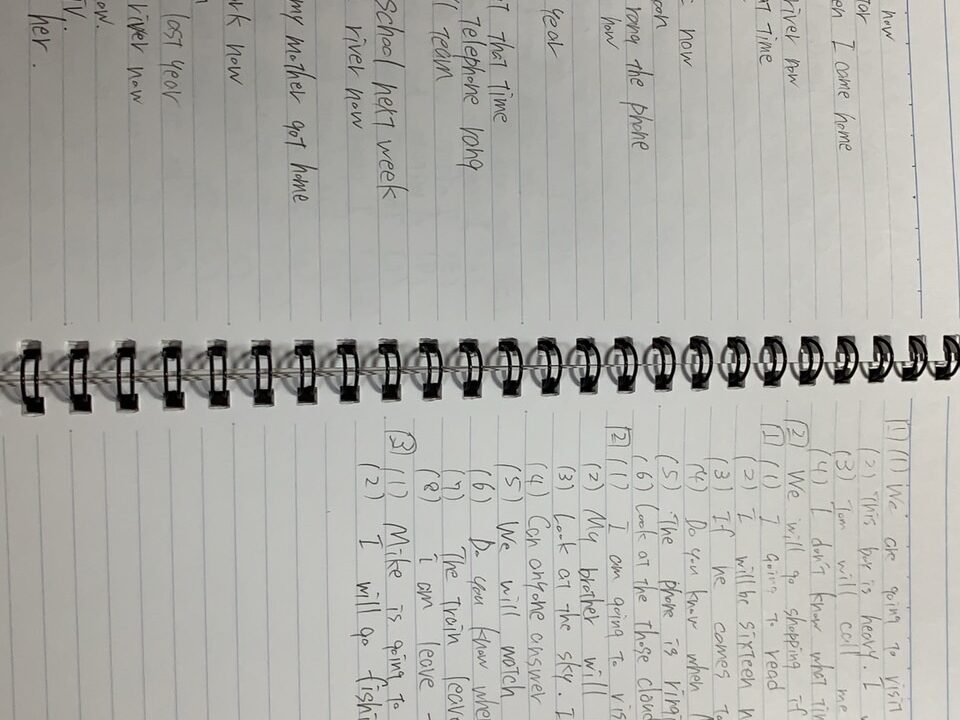 now
I came home
river now
time
now
rang the phone
now
year
that time
telephone rang
team
school next week
river now
my mother got home
now
last year
river now
her.
[1] (1) We are going to visit
(2) This box is heavy. I
(3) Tom will call me
(4) I don't know what
[2] We will go shopping if
[1] (1) I going to read
(2) I will be sixteen
(3) If he comes
(4) Do you know when
(5) The phone is
(6) Look at the those
[2] (1) I am going to
(2) My brother will
(3) Look at the sky. I
(4) Can anyone answer
(5) We will watch
(6) Do you know
(7) The train
(8) I am leave
[3] (1) Mike is going to
(2) I will go